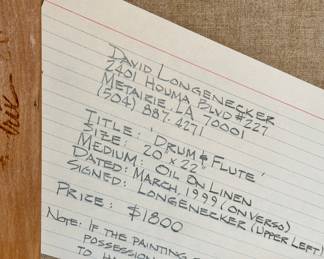 David Longenecker
2401 Houma Blvd #227
Metairie, LA 70001
(504) 887-4271
Title: 'Drum & Flute'
Size: 20" x 22"
Medium: Oil on Linen
Dated: March, 1999 (on verso)
Signed: Longenecker (upper left)
Price: $1800
Note: If the painting
possession
to